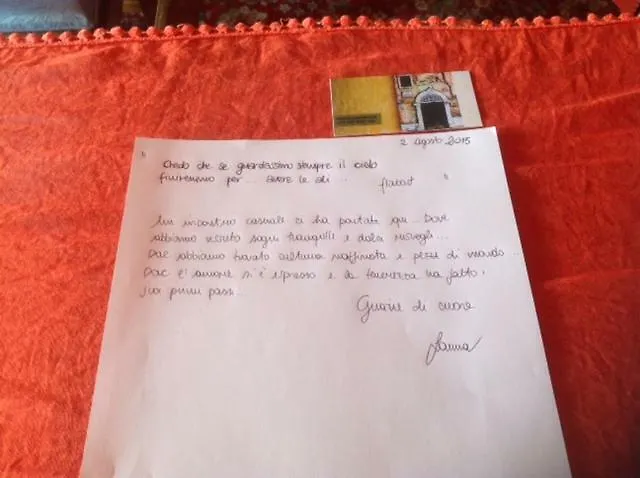 2 agosto 2015
" Credo che se guardassimo sempre il cielo
finiremmo per... avere le ali... "
Un incontro casuale ci ha portati qui... Dove
abbiamo vissuto sogni tranquilli e dolci risvegli...
Dove abbiamo trovato cultura raffinata e pezzi di mondo...
Dove l'amore si è espresso e la tenerezza ha fatto i
suoi primi passi...
Grazie di cuore